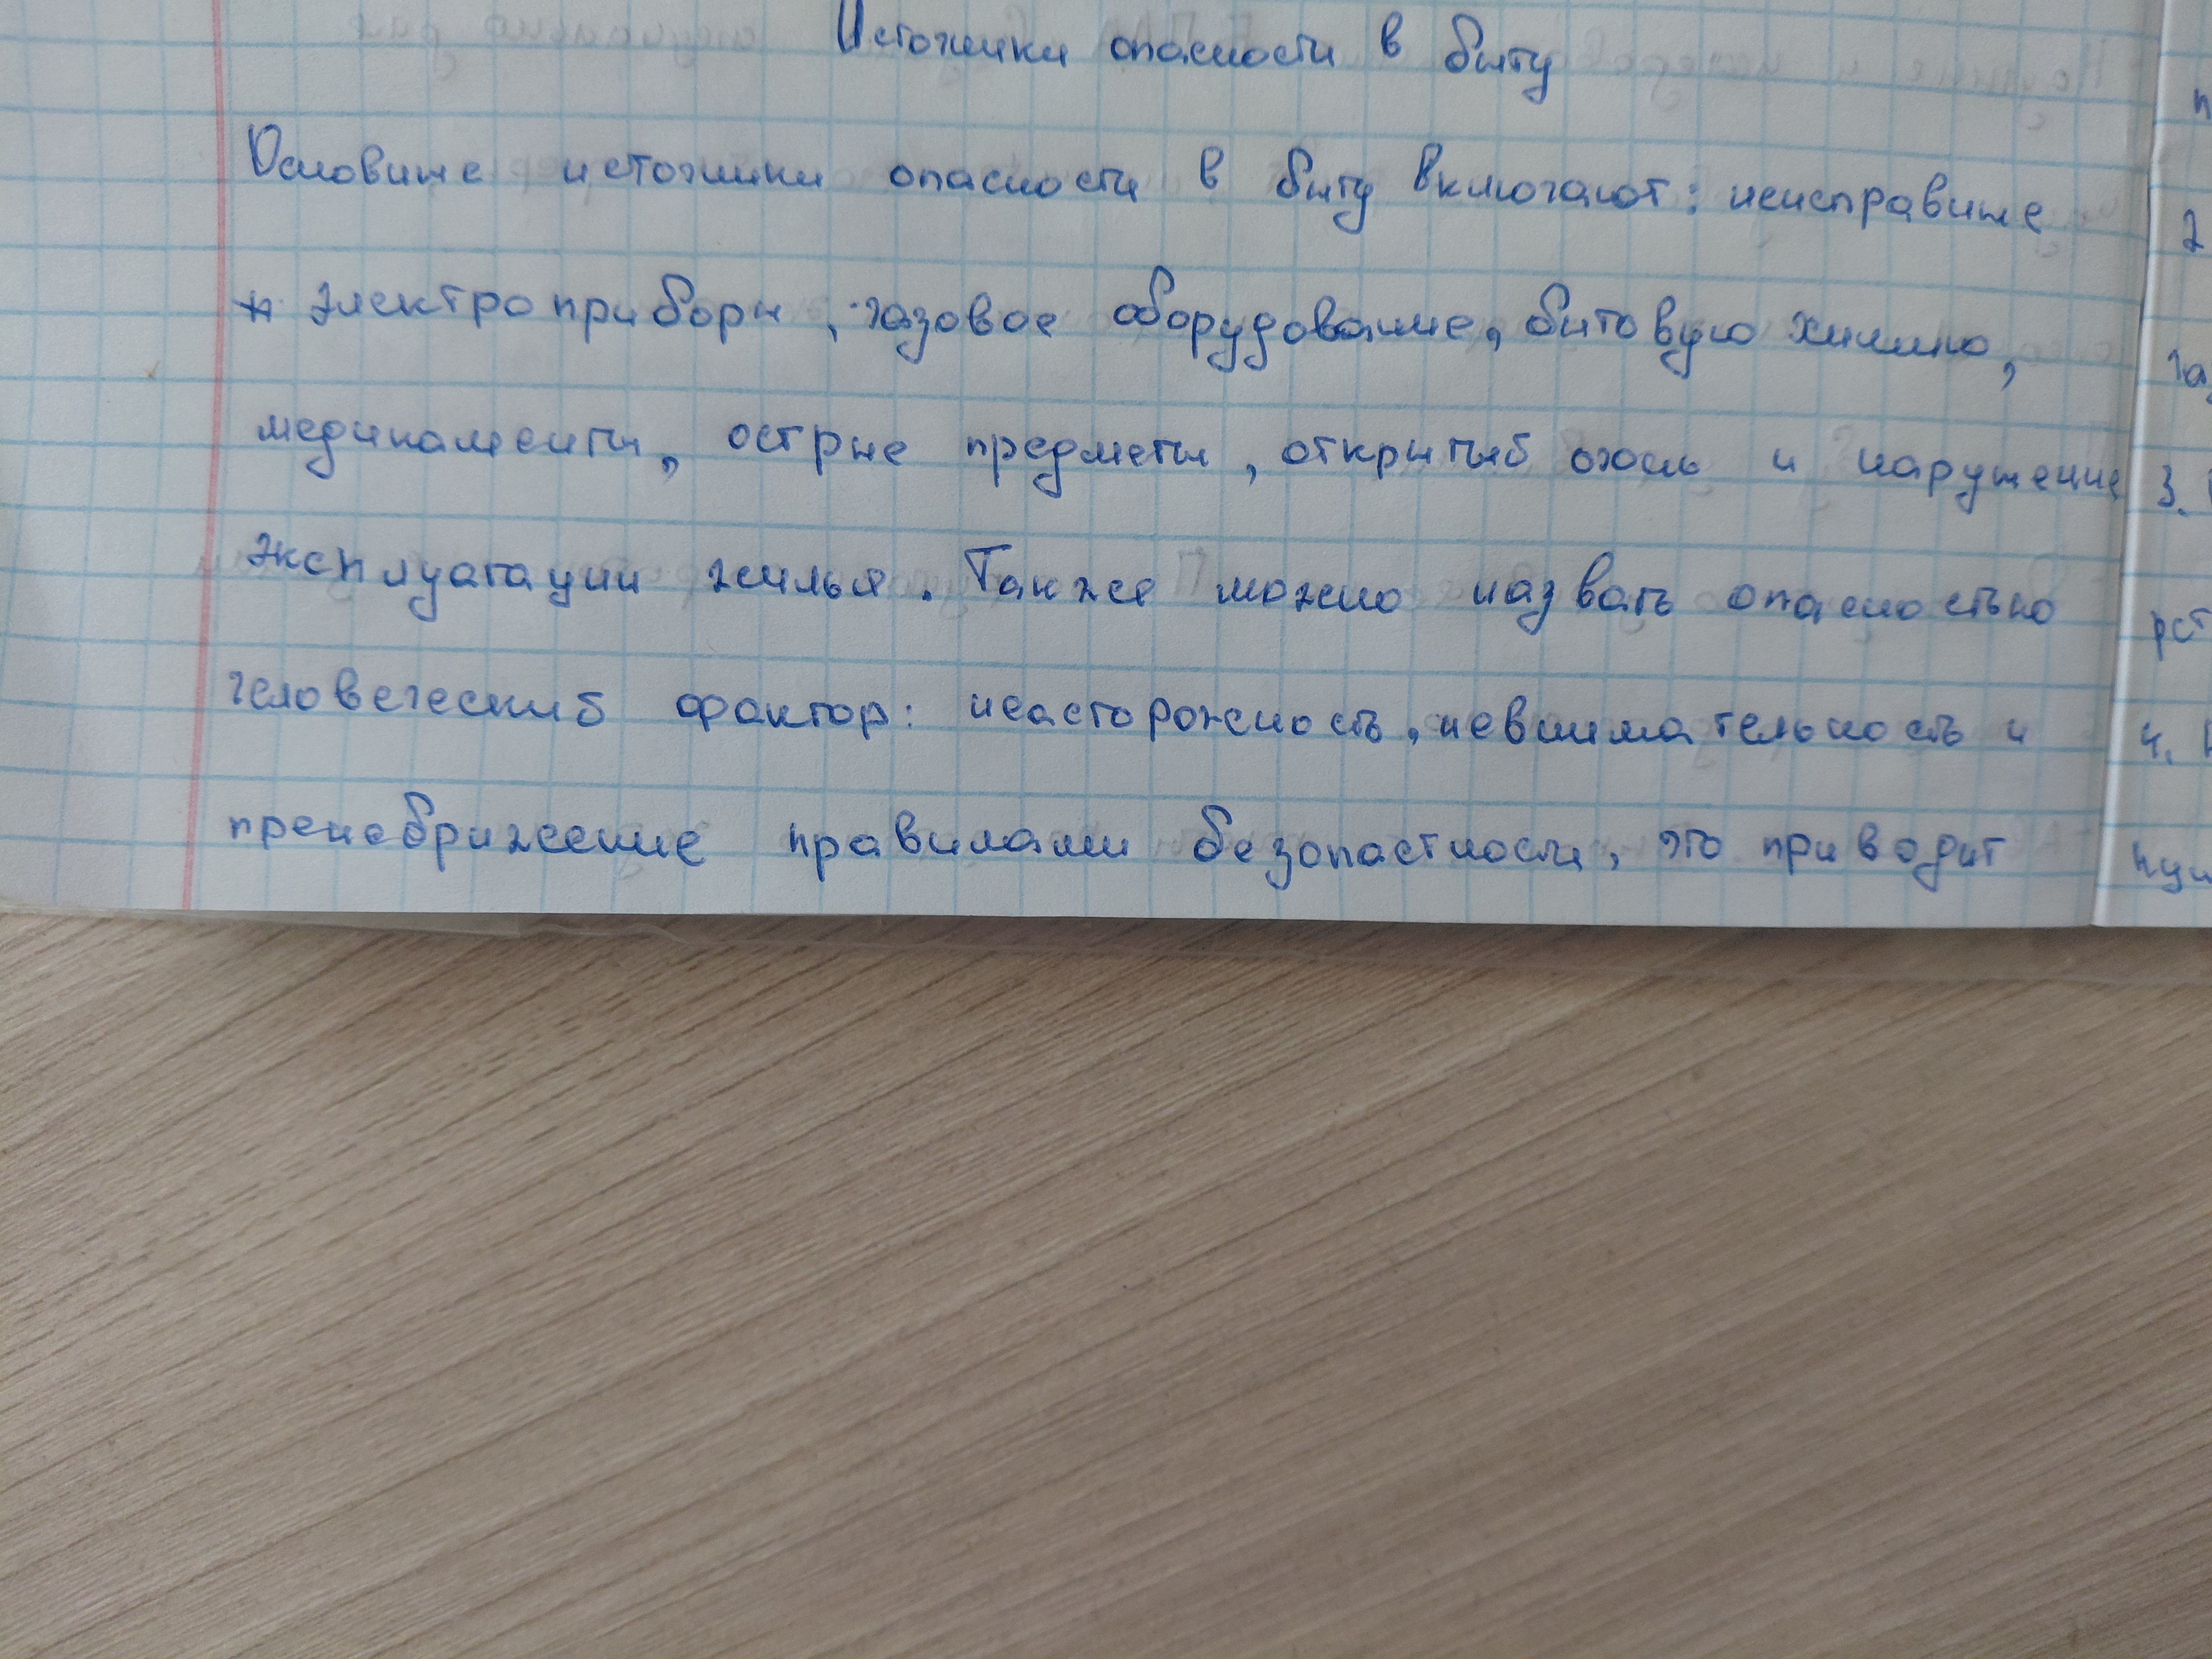 Источники опасности в быту
Основные источники опасности в быту включают: неисправные
электроприборы, газовое оборудование, бытовую химию,
медикаменты, острые предметы, открытый огонь и нарушение
эксплуатации жилья. Также можно назвать опасностью
человеческий фактор: неасторожность, невнимательность и
пренебрижение правилами безопастности, это приводит
2
3.
4.